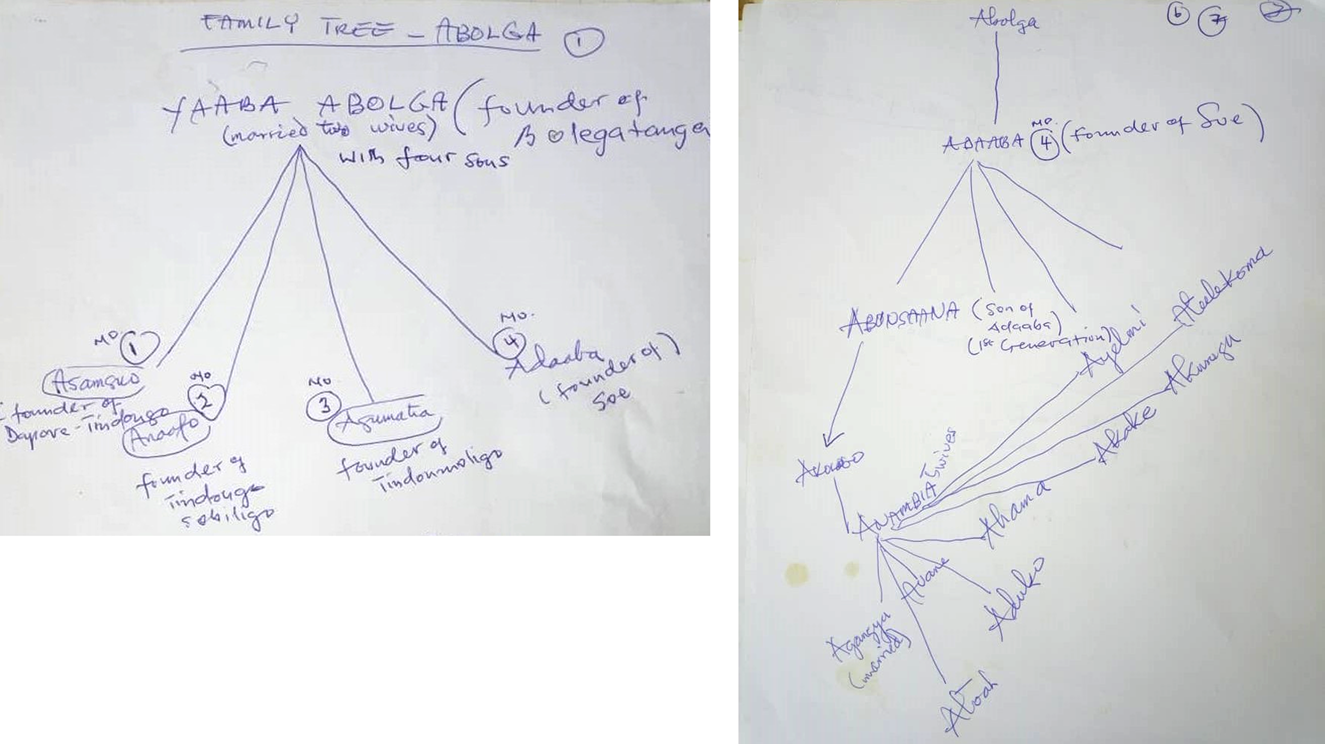 FAMILY TREE - ABOLGA 1
YAABA ABOLGA (founder of
(married two wives) Bolegatanga
with four sons
NO 1
Asamguo
founder of
Dapore-Tindongo
NO 2
founder of
Tindongo
sobiligo
NO 3
Agumatia
founder of
Tindonmoligo
NO. 4
Adaaba
(founder of)
Soe
Abolga 6 7
ADAABA NO. 4 (founder of Soe)
ABONSAANA (Son of
Adaaba)
(1st Generation)
Ayelmi
Akake
ANAMBIA 5 wives
Ahama
Avane
Aduko
Agangya
(married)
Atoah